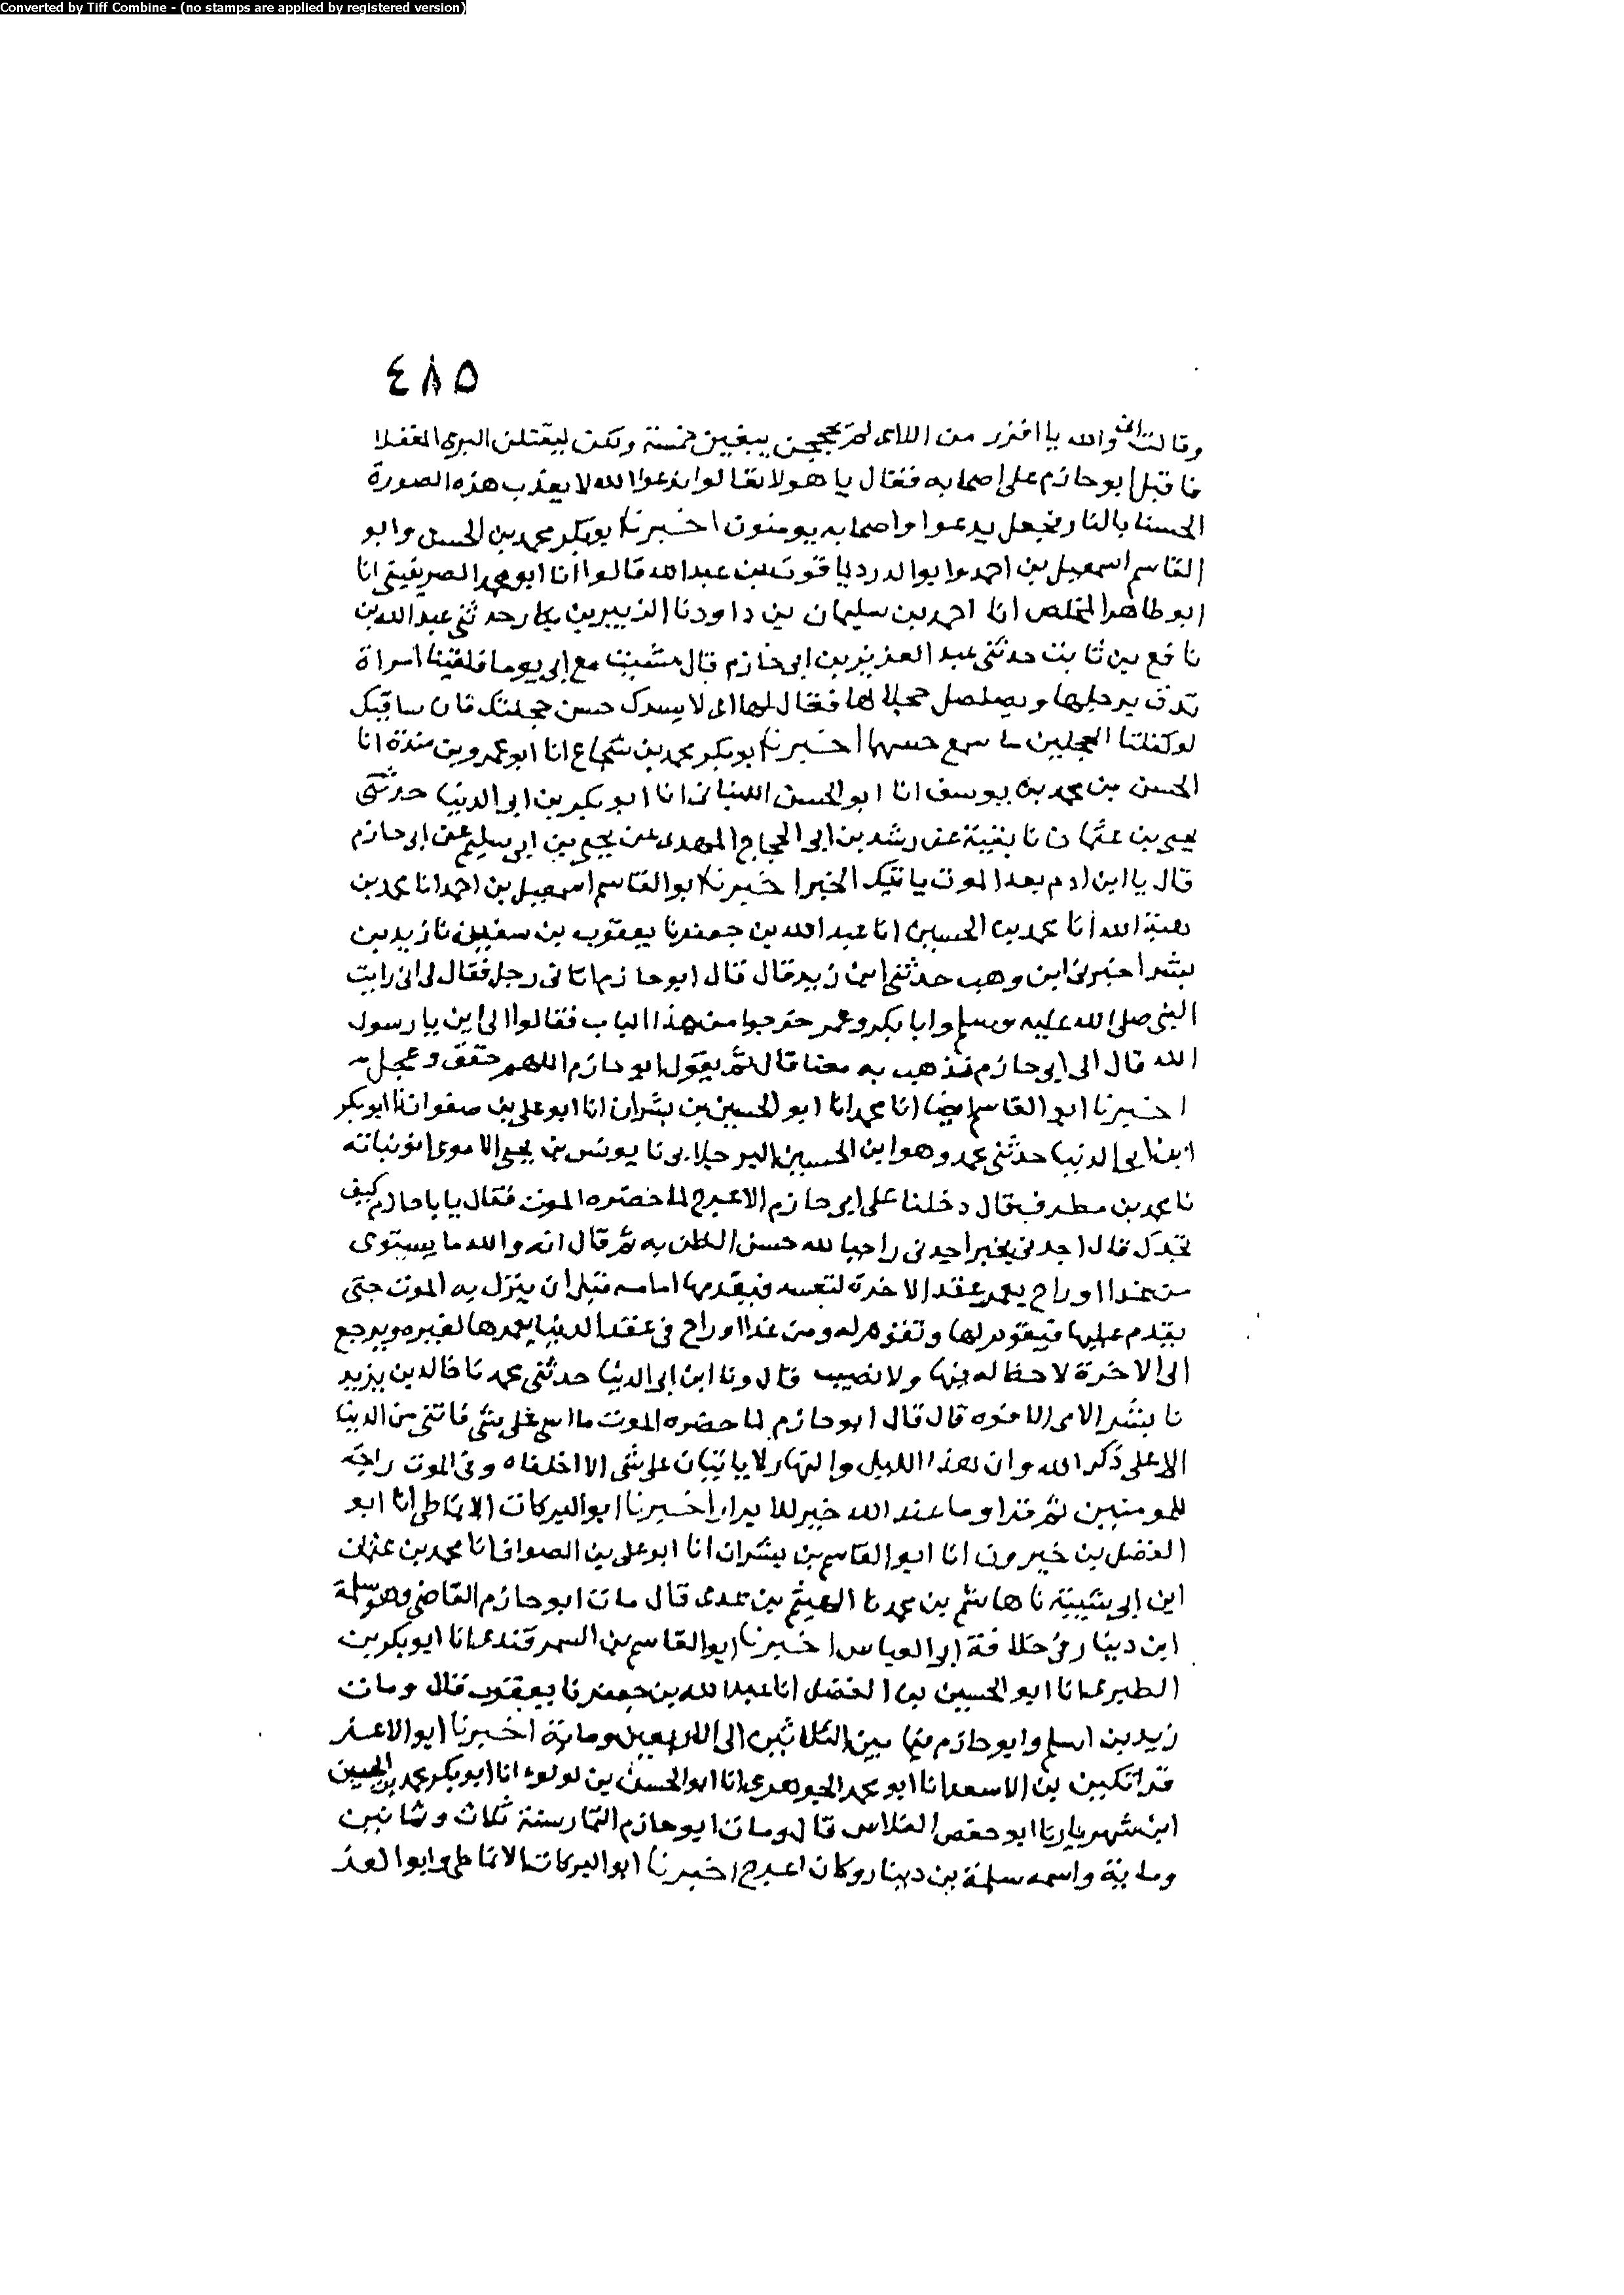 Converted by Tiff Combine - (no stamps are applied by registered version)
٤٨٥
وقالت انى والله يا افزر من اللاى لم يحججن يبغين خمسة ولكن ليقتلن البرى المغفلا
فاقبل ابو حازم على اصحابه فقال يا هولا تعالوا ندعوا الله لا يعذب هذه الصورة
الحسنا بالنار فجعل يدعوا واصحابه يومنون اخبرنا ابو بكر محمد بن الحسن وابو
القاسم اسمعيل بن احمد وابو الدرد ياقوت بن عبد الله قالوا انا ابو محمد الصريفينى انا
ابو طاهر المخلص انا احمد بن سليمان بن داود نا الزبير بن بكار حدثنى عبد الله بن
نافع بن ثابت حدثنى عبد العزيز بن ابى حازم قال مشيت مع ابى يوما فلقينا امراة
برجلها ويصلصل حجلا لها فقال لها ابى لا حسن حجلتك فان ساقيك
لو الحجلين ما سمع حسهما اخبرنا ابو بكر محمد بن شجاع انا ابو عمرو بن مندة انا
الحسن بن محمد بن يوسف انا ابو الحسن اللنبانى انا ابو بكر بن ابى الدنيا حدثنى
يحيى بن عثمان نا بقية عن رشد بن ابى الحجاج المهدى عن يحيى بن ابى سليم عن ابى حازم
قال يا ابن ادم بعد الموت ياتيك الخبر اخبرنا ابو القاسم اسمعيل بن احمد انا محمد بن
هبة الله انا محمد بن الحسين انا عبد الله بن جعفر نا يعقوب بن سفين نا زيد بن
بشر اخبرنى ابن وهب حدثنى ابن زيد قال قال ابو حازم اتانى رجل فقال لى انى رايت
النبى صلى الله عليه وسلم وابا بكر وعمر خرجوا من هذا الباب فقالوا الى اين يا رسول
الله قال الى ابى حازم فنذهب به معنا قال ثم يقول ابو حازم اللهم حقق وعجل
اخبرنا ابو القاسم ايضا انا محمد انا ابو الحسين بن بشران انا ابو على بن صفوان نا ابو بكر
ابن ابى الدنيا حدثنى محمد وهو ابن الحسين البرجلانى نا يونس بن يحيى الاموى ابو نباته
نا محمد بن مطرف قال دخلنا على ابى حازم الاعرج لما حضره الموت فقال يا با حازم كيف
تجدك قال اجدنى بخير اجدنى راجيا لله حسن الظن به ثم قال انه والله ما يستوى
من غدا او راح يعمر عقد الاخرة لنفسه فيقدمها امامه قبل ان ينزل به الموت حتى
يقدم عليها فيقوم لها وتقوم له ومن غدا او راح فى عقد الدنيا يعمرها لغيره ويرجع
الى الاخرة لا حظ له فيها ولا نصيب قال ونا ابن ابى الدنيا حدثنى محمد نا خالد بن يزيد
نا بشر الامى الافوه قال قال ابو حازم لما حضره الموت ما اسى على شى فاتنى من الدنيا
الا على ذكر الله وان هذا الليل والنهار لا ياتيان على شى الا اخلقاه وفى الموت راحة
للمومنين ثم قرا وما عند الله خير للابرار اخبرنا ابو البركات الانماطى انا ابو
الفضل بن خيرون انا ابو القاسم بن بشران انا ابو على بن الصواف انا محمد بن عثمان
ابن ابى شيبة نا هاشم بن محمد نا الهيثم بن عدى قال مات ابو حازم القاضى وهو سلمة
ابن دينار فى خلافة ابى العباس اخبرنا ابو القاسم بن السمرقندى انا ابو بكر بن
الطبرى انا ابو الحسين بن الفضل انا عبد الله بن جعفر نا يعقوب قال ومات
زيد بن اسلم وابو حازم فيما بين الثلاثين الى الاربعين وماية اخبرنا ابو الاعز
قراتكين بن الاسعد انا ابو محمد الجوهرى انا ابو الحسن بن لولوء انا ابو بكر محمد بن الحسين
ابن شهريار نا ابو حفص الفلاس قال ومات ابو حازم التمار سنة ثلاث وثمانين
وماية واسمه سلمة بن دينار وكان اعرج اخبرنا ابو البركات الانماطى وابو العز